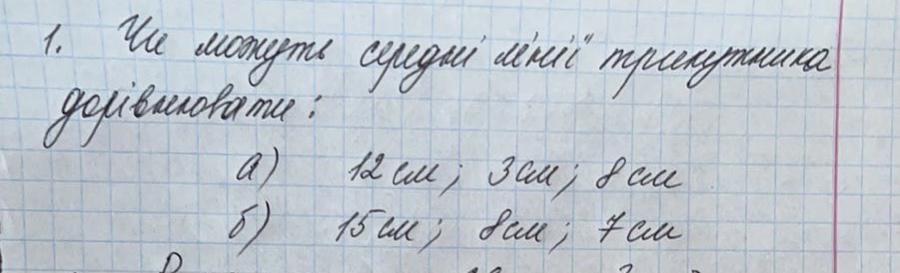 1. Чи можуть середні лінії трикутника
дорівнювати:
а) 12 см; 3 см; 8 см
б) 15 см; 8 см; 7 см